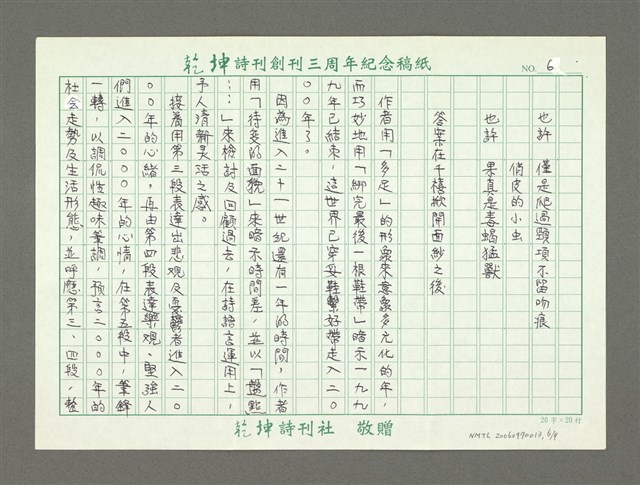 乾坤詩刊創刊三周年紀念稿紙
NO. 6
也許 僅是爬過頸項不留吻痕
俏皮的小虫
也許 果真是毒蝎猛獸
答案在千禧掀開面紗之後
作者用「多足」的形象來意象多元化的年，
而巧妙地用「綁完最後一根鞋帶」暗示一九九
九年已結束，這世界已穿妥鞋繫好帶走入二０
００年了。
因為進入二十一世紀還有一年的時間，作者
用「待嫁的面靦」來暗示時間差，並以「盤點
……」來檢討及回顧過去，在詩語言運用上，
予人清新靈活之感。
接着用第三段表達出悲觀及憂鬱者進入二０
００年的心緒，再由第四段表達樂觀、堅強人
們進入二０００年的心情，在第五段中，筆鋒
一轉，以調侃性趣味筆調，預言二０００年的
社會走勢及生活形態，並呼應第三、四段，整
20字×20行
乾坤詩刊社 敬贈
NMTL 20060990013, 6/9